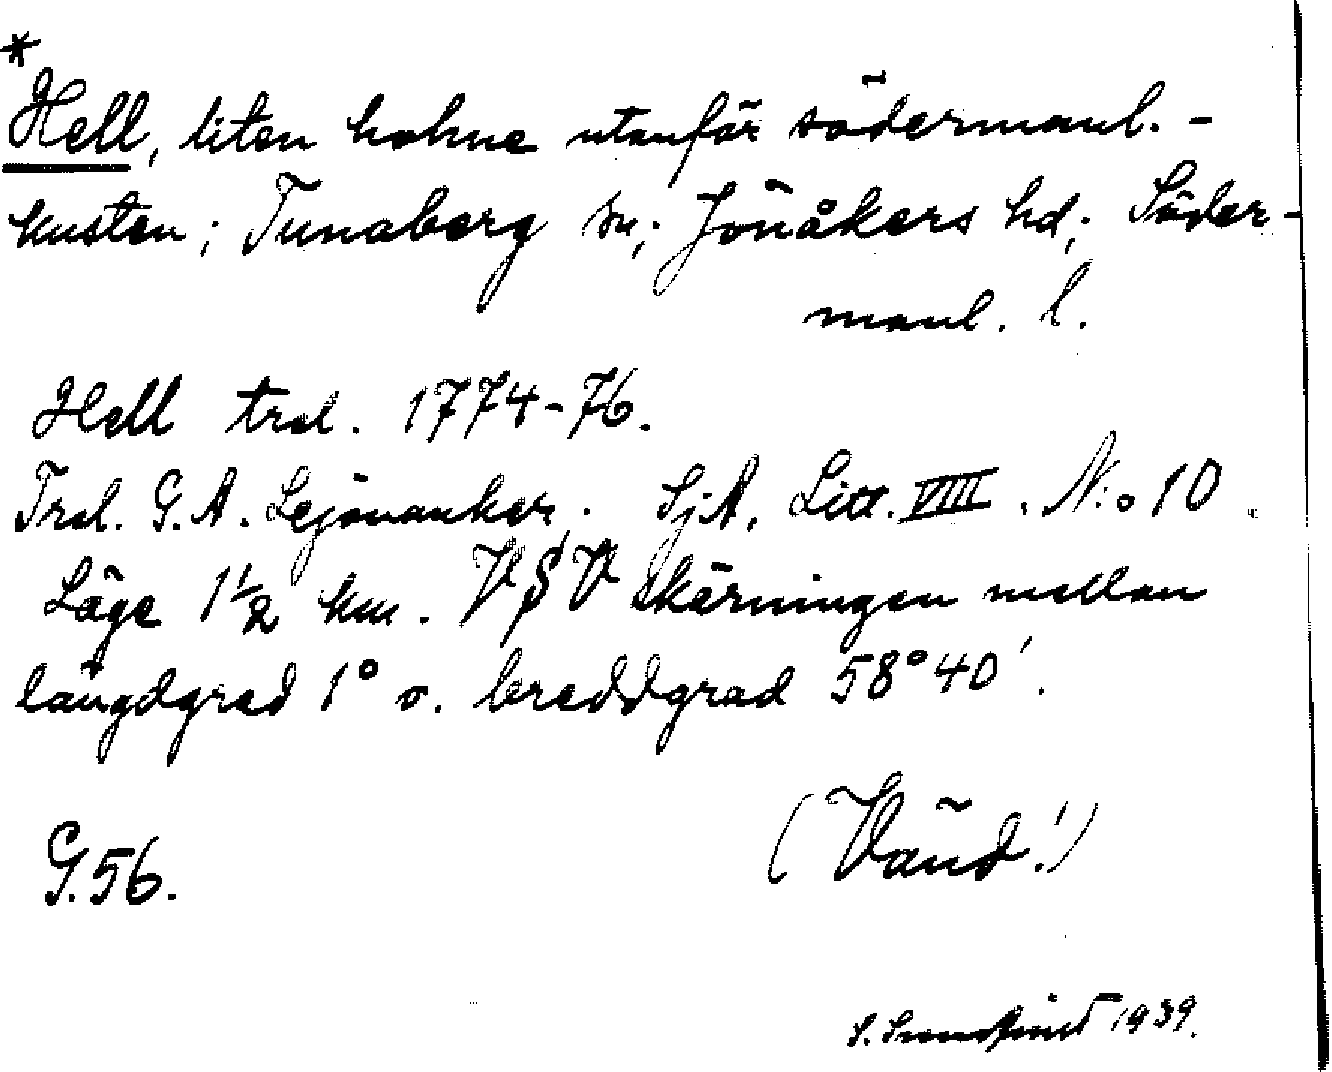 *
Hell, liten holme utanför södermanl.-
kusten; Tunaberg sn; Jönåkers hd; Söder-
manl. l.
Hell trol. 1774-76.
Trol. G.A. Lejonanker. SjA, Litt. VIII. N:o 10.
Läge 1½ km. VSV skärningen mellan
längdgrad 1° o. breddgrad 58°40'.
(Vänd!)
G.56.
1939.